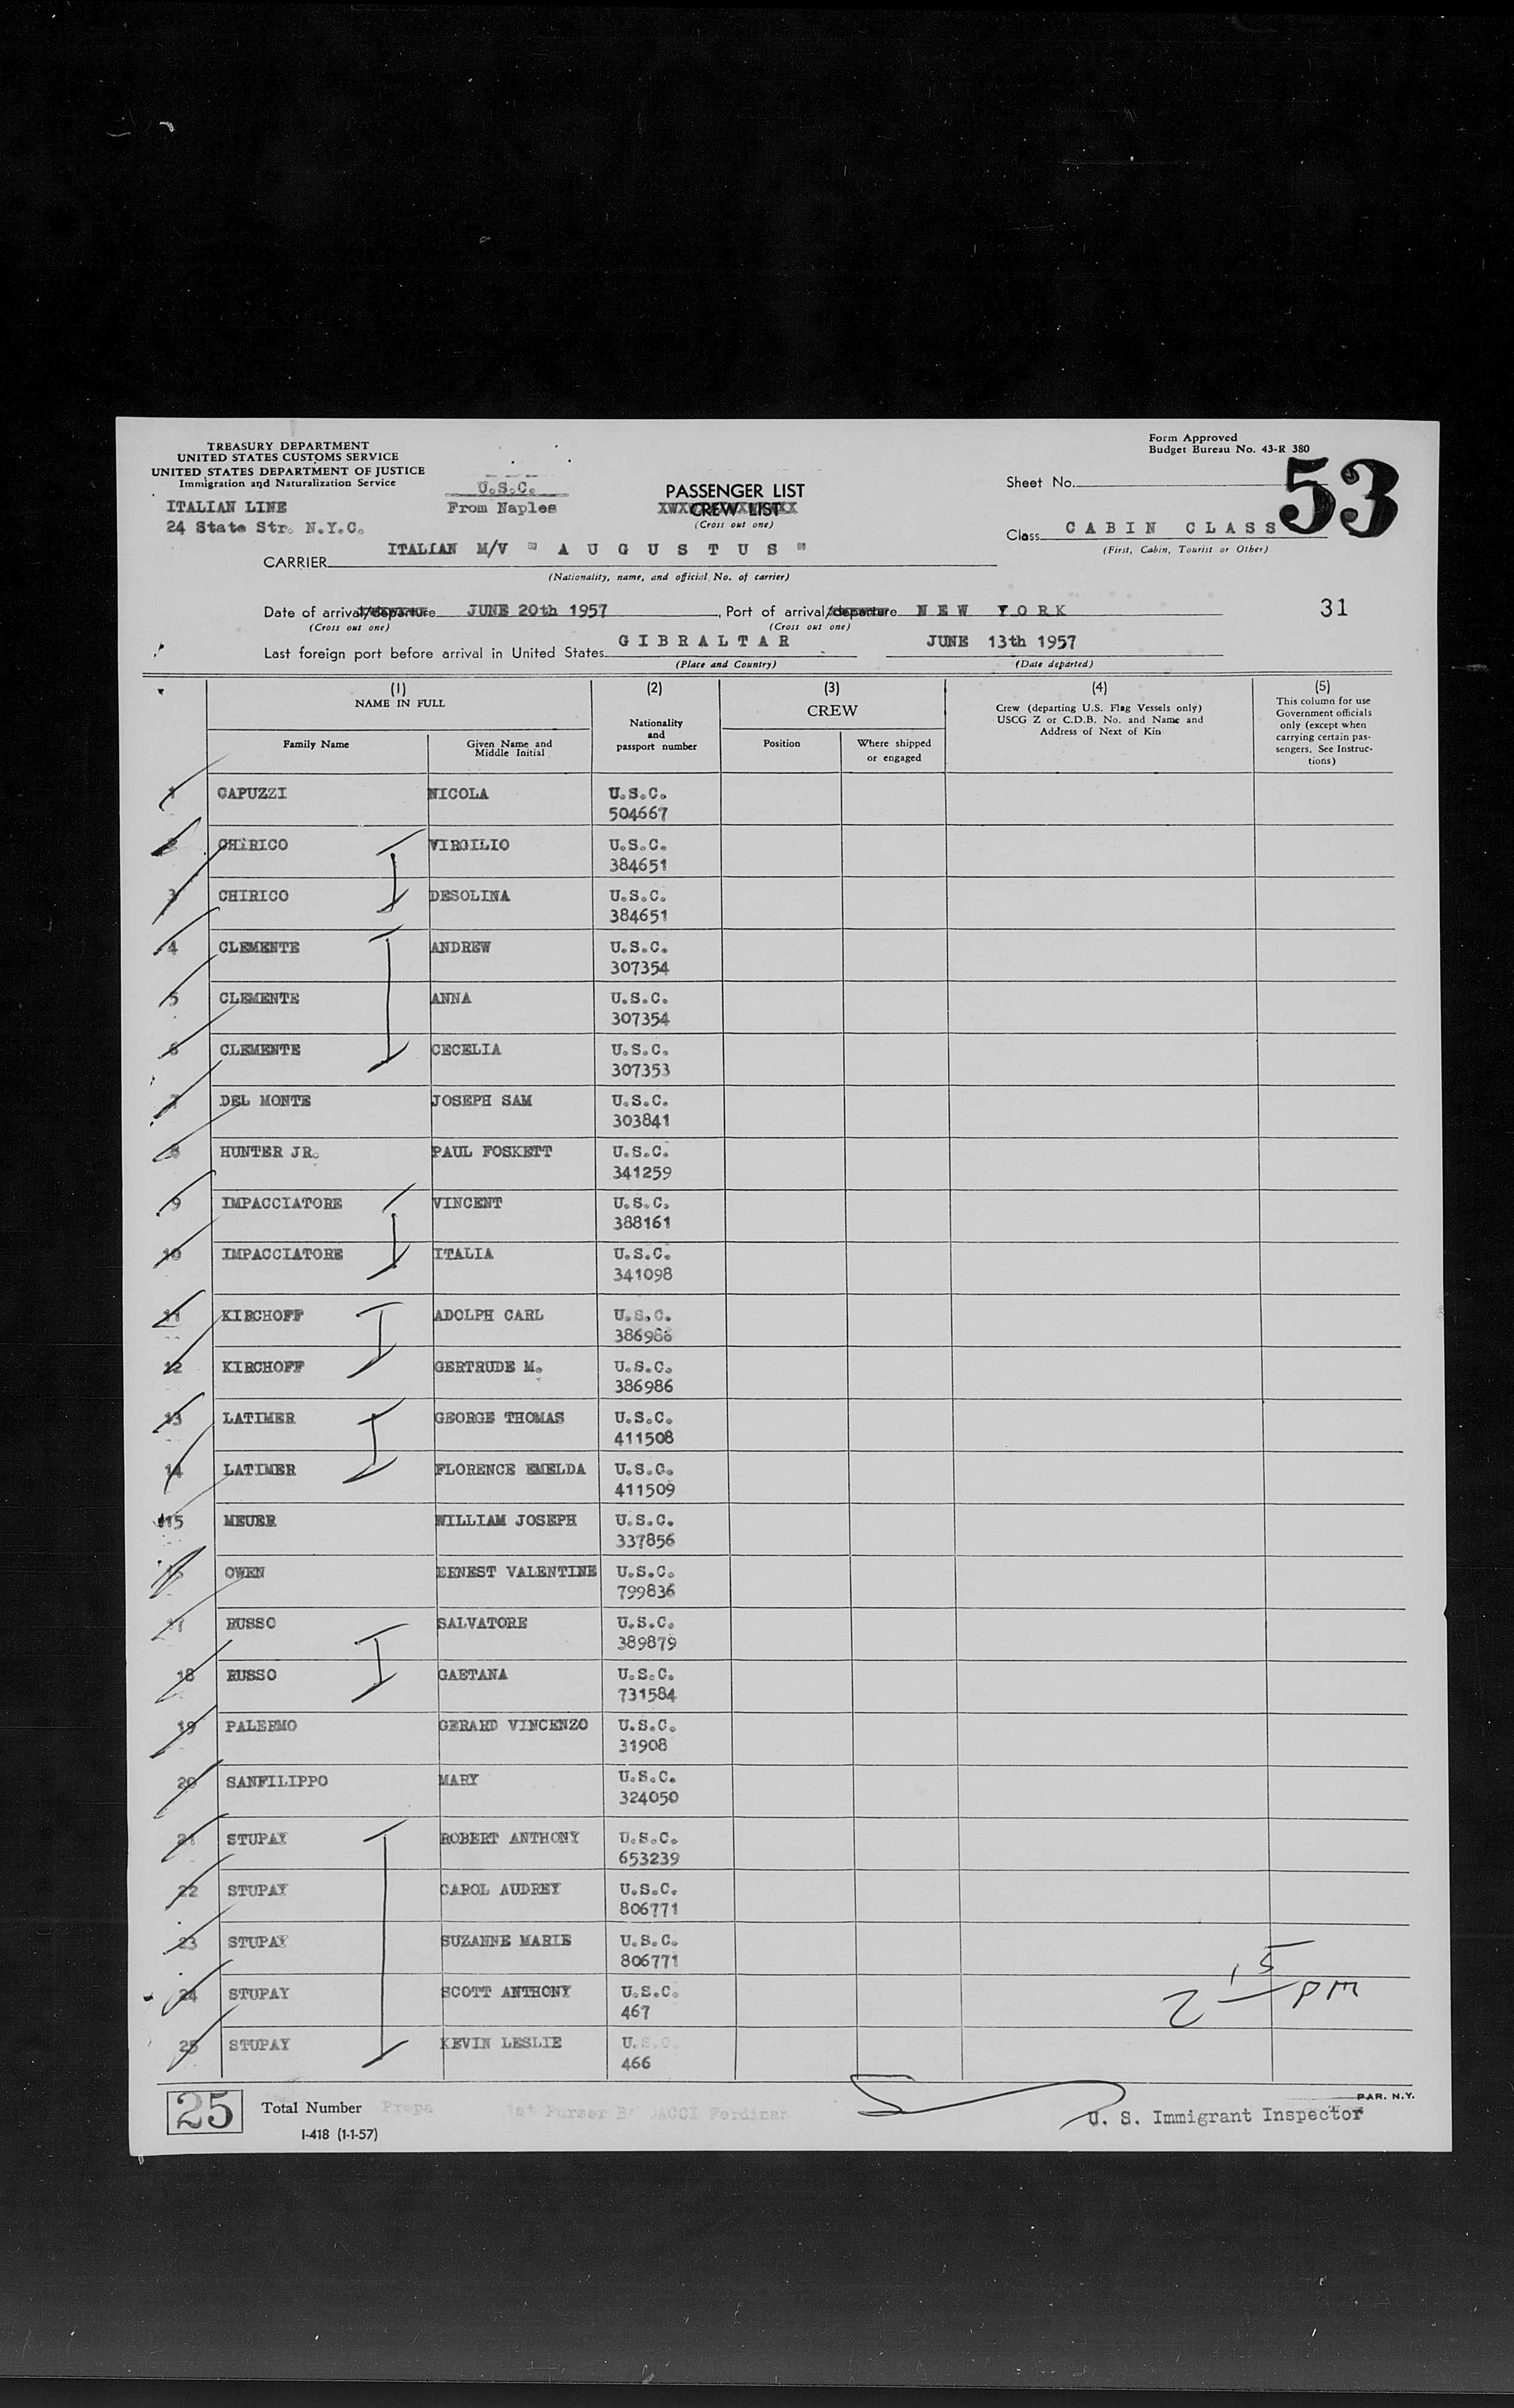 TREASURY DEPARTMENT
UNITED STATES CUSTOMS SERVICE
UNITED STATES DEPARTMENT OF JUSTICE
Immigration and Naturalization Service
ITALIAN LINE
24 State Str. N.Y.C.
U.S.C.
From Naples
PASSENGER LIST
CREW LIST
(Cross out one)
Form Approved
Budget Bureau No. 43-R 380
Sheet No. 53
Class CABIN CLASS
(First, Cabin, Tourist or Other)
CARRIER ITALIAN M/V "AUGUSTUS"
(Nationality, name, and official No. of carrier)
Date of arrival/departure JUNE 20th 1957, Port of arrival/departure NEW YORK
31
(Cross out one) (Cross out one)
Last foreign port before arrival in United States GIBRALTAR JUNE 13th 1957
(Place and Country) (Date departed)
(1)
NAME IN FULL
Family Name
Given Name and Middle Initial
(2)
Nationality and passport number
(3)
CREW
Position
Where shipped or engaged
(4)
Crew (departing U.S. Flag Vessels only)
USCG Z or C.D.B. No. and Name and
Address of Next of Kin
(5)
This column for use
Government officials
only (except when
carrying certain pas-
sengers. See Instruc-
tions)
1 CAPUZZI NICOLA U.S.C.
504667
2 CHIRICO VIRGILIO U.S.C.
384651
3 CHIRICO DESOLINA U.S.C.
384651
4 CLEMENTE ANDREW U.S.C.
307354
5 CLEMENTE ANNA U.S.C.
307354
6 CLEMENTE CECELIA U.S.C.
307353
7 DEL MONTE JOSEPH SAM U.S.C.
303841
8 HUNTER JR. PAUL FOSKETT U.S.C.
341259
9 IMPACCIATORE VINCENT U.S.C.
388161
10 IMPACCIATORE ITALIA U.S.C.
341098
11 KIRCHOFF ADOLPH CARL U.S.C.
386986
12 KIRCHOFF GERTRUDE M. U.S.C.
386986
13 LATIMER GEORGE THOMAS U.S.C.
411508
14 LATIMER FLORENCE EMELDA U.S.C.
411509
15 MEUER WILLIAM JOSEPH U.S.C.
337856
16 OWEN ERNEST VALENTINE U.S.C.
799836
17 RUSSO SALVATORE U.S.C.
389879
18 RUSSO GAETANA U.S.C.
731584
19 PALERMO GERARD VINCENZO U.S.C.
31908
20 SANFILIPPO MARY U.S.C.
324050
21 STUPAY ROBERT ANTHONY U.S.C.
653239
22 STUPAY CAROL AUDREY U.S.C.
806771
23 STUPAY SUZANNE MARIE U.S.C.
806771
24 STUPAY SCOTT ANTHONY U.S.C.
467
25 STUPAY KEVIN LESLIE U.S.C.
466
2 15 PM
25 Total Number
1st Purser
I-418 (1-1-57)
PAR. N.Y.
U. S. Immigrant Inspector